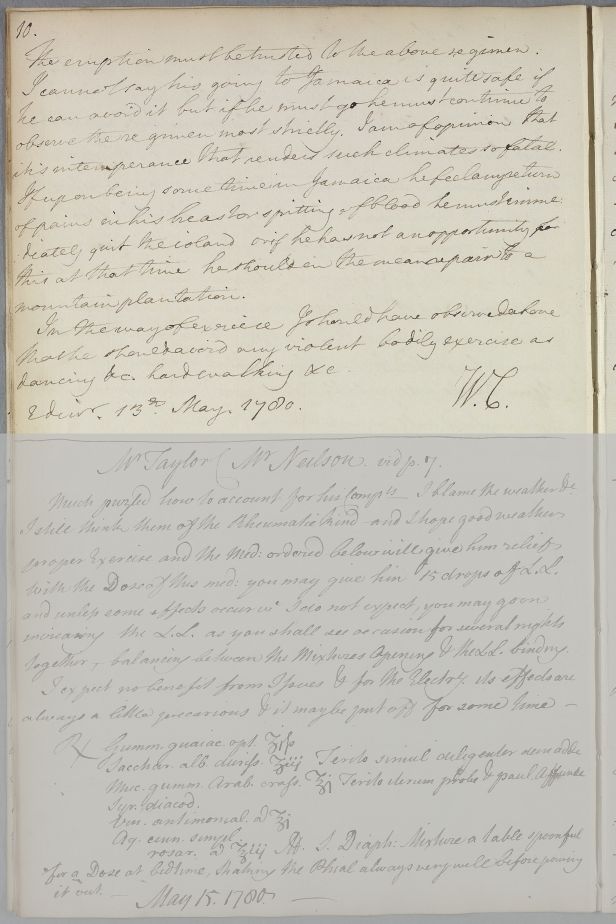 10.
The eruption must be trusted to the above regimen.
I cannot say his going to Jamaica is quite safe if
he can avoid it but if he must go he must continue to
observe the regimen most strictly. I am of opinion that
it is intemperance that renders such climates so fatal.
If upon being some time in Jamaica he feel any return
of pains in his breast or spitting of blood he must imme
diately quit the island or if he has not an opportunity for
this at that time he should in the mean repair to a
mountain plantation.
In the way of exercise I should have observed above
that he should avoid any violent bodily exercise as
dancing &c. hard walking &c
Edinr. 13th May. 1780.
W.C.
Mr Taylor ( Mr Neilson. vid p. 7.
Much puzled how to account for his Compts I blame the weather &
I still think them of the Rheumatic kind and I hope good weather
proper Exercise and the Med: ordered below will give him relief
With the Dose of this med: you may give him 15 drops of L.L.
and unless some effects occur wc I do not expect, you may go on
increasing the L.L. as you shall see occasion for several nights
together, balancing between the Mixtures Opening & the L.L. binding.
I expect no benefit from Issues & for the Electry. its effects are
always a little precarious & it may be put off for some time —
℞ Gumm. guaiac. opt. ʒiſs
Sacchar. alb. duriss. ʒiij Terito simul diligenter dein adde
Muc. gumm. Arab. crass. ʒj Terito iterum probe & paul. affunde
Syr. diacod.
Vin. antimonial. a ʒj
Aq. cinn. simpl.
rosar. a ℥iij M. S. Diaph: Mixture a table spoonful
for a Dose at bedtime, shaking the Phial always very well before pouring
it out. —
May 15. 1780. —